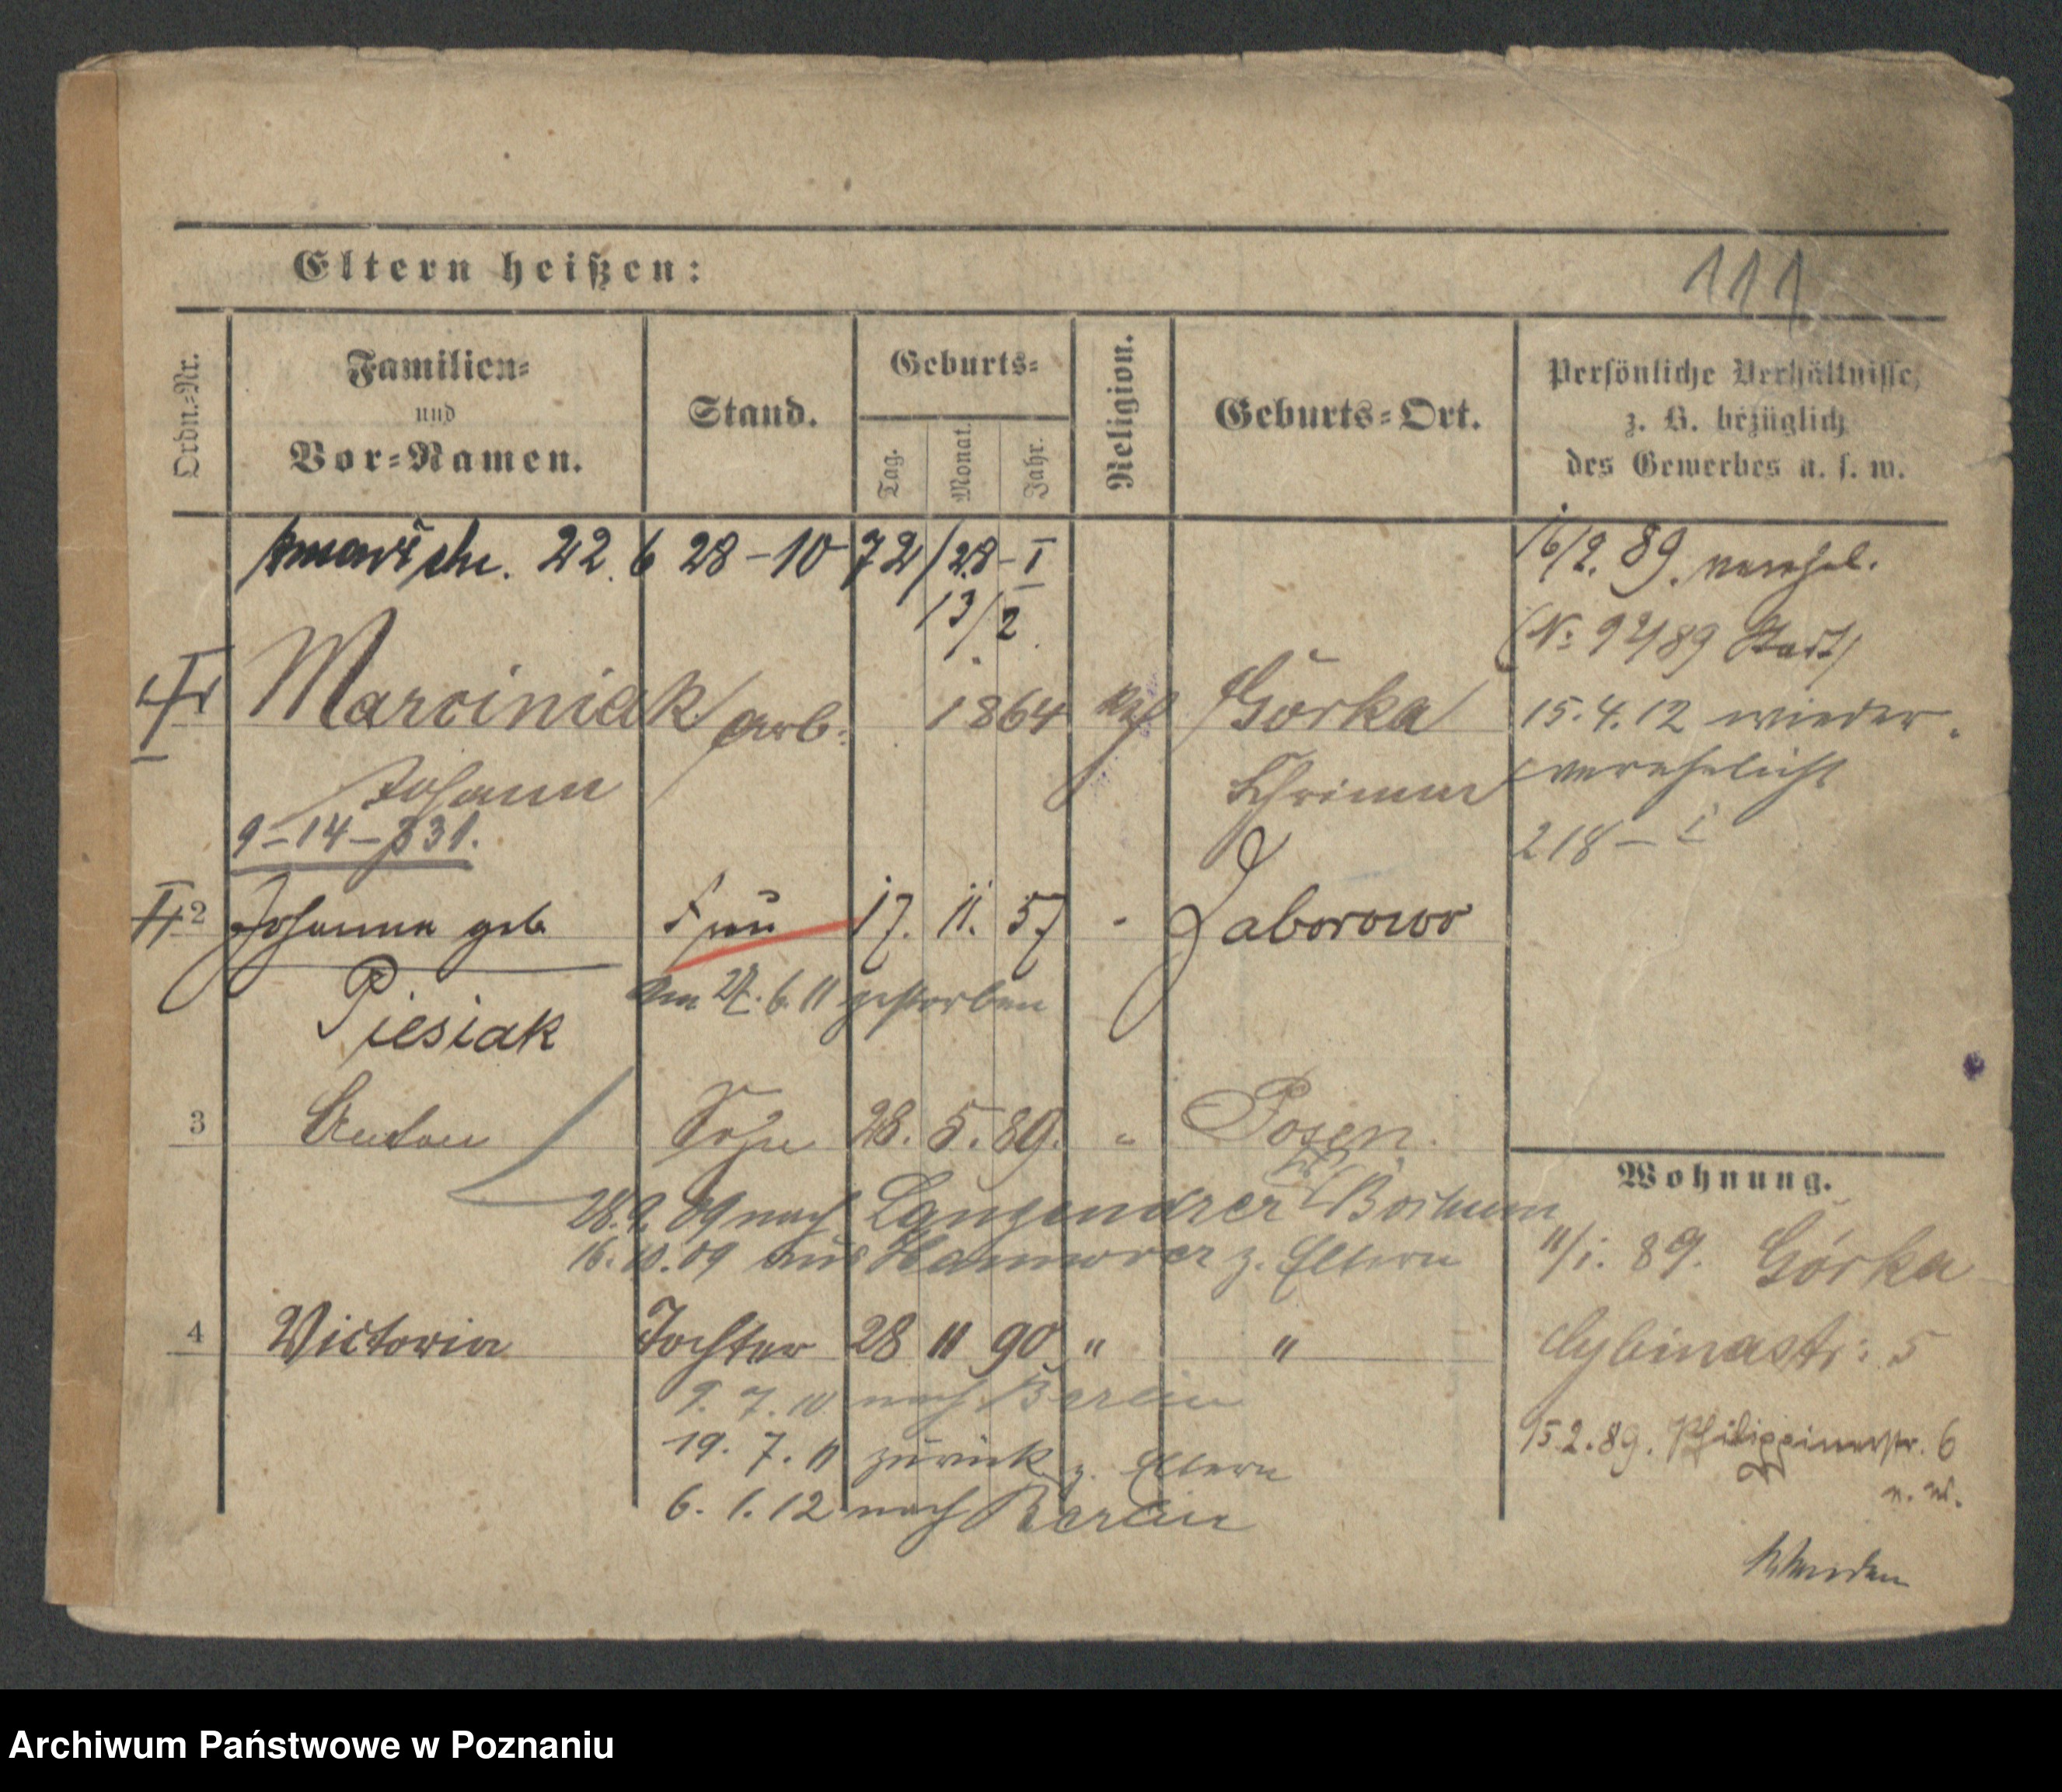 Eltern heißen:
111
Ordn.-Nr.
Familien-
und
Vor-Namen.
Stand.
Geburts-
Tag.
Monat.
Jahr.
Religion.
Geburts-Ort.
Persönliche Verhältnisse,
z. B. bezüglich
des Gewerbes u. s. w.
22. 6 28-10 72/28-I
13/2
16/2. 89. verehel.
(No 92/89 Stadt)
Marciniak arb. 1864 Górka
Johann Schrimm
15.4.12 wieder
verehelicht
218-I
9-14-331.
II 2 Johanna geb. Frau 17. 11. 57 Zaborowo
Am 27.6.11 gestorben
Piesiak
3 Anton Sohn 28. 5. 89. " Posen.
28.9.09 nach Langendreer Bochum
16.10.09 aus Hannover z. Eltern
4 Victoria Tochter 28 11 90 " "
9. 7. 10 nach Berlin
19. 7. 11 zurück z. Eltern
6. 1. 12 nach Berlin
Wohnung.
11/1. 89. Górka
Cybinastr: 5
15.2.89. Philippinerstr. 6
Archiwum Państwowe w Poznaniu